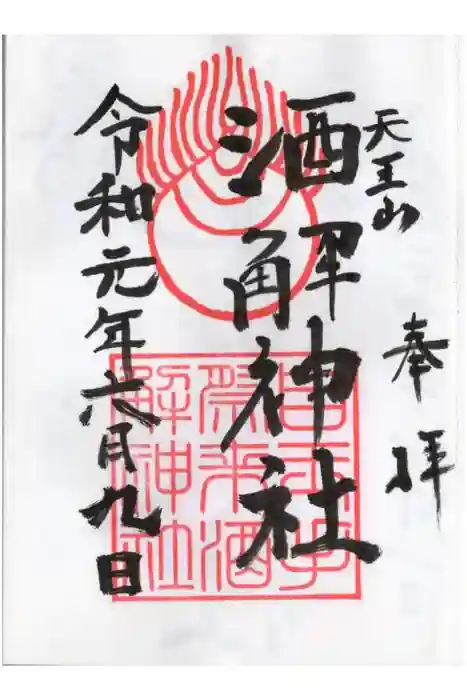 奉拝
天王山
酒解神社
令和元年六月九日
酒
解神社